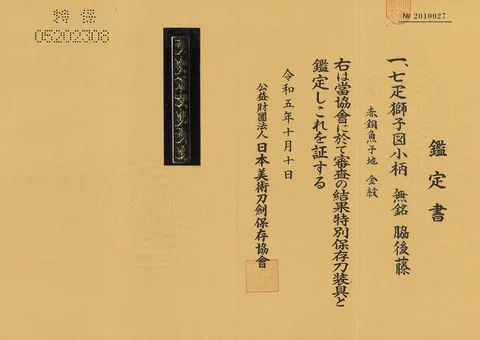 № 2010027
鑑定書
一、七疋獅子図小柄 無銘 脇後藤
赤銅魚子地 金紋
右は當協會に於て審査の結果特別保存刀装具と
鑑定しこれを証する
令和五年十月十日
公益財團法人 日本美術刀劍保存協會
特保
05202308